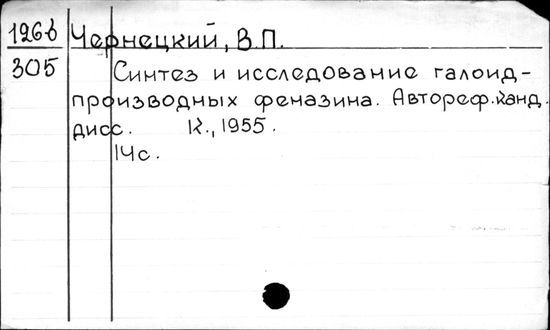 126б Чернецкий, В.П.
305 Синтез и исследование галоид-
производных феназина. Автореф. канд.
дисс. К., 1955.
14с.